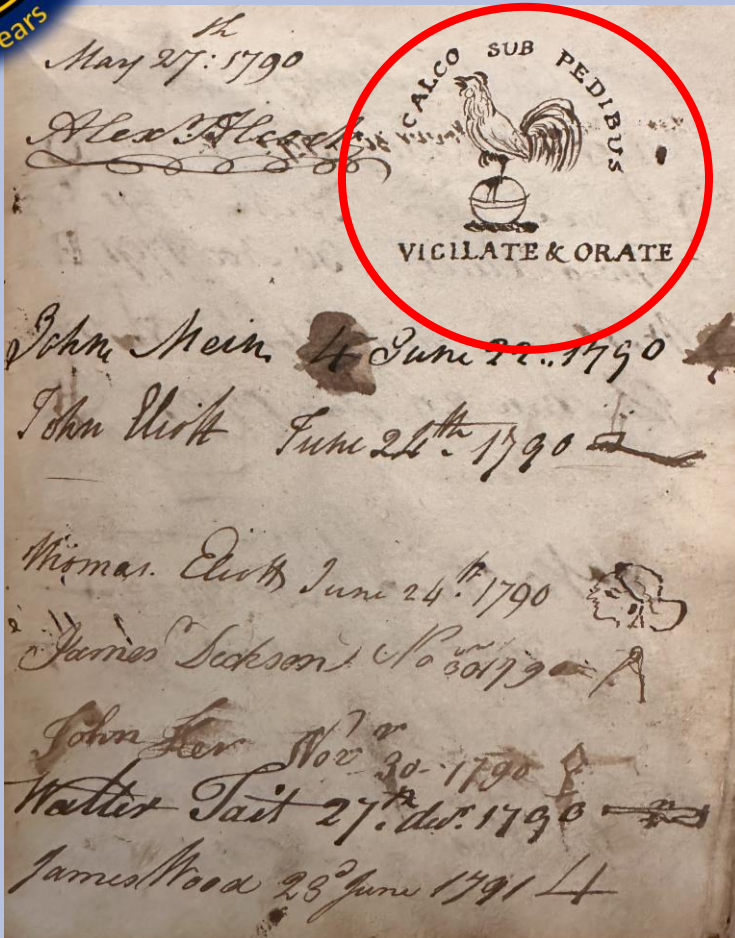 ears
th
May 27: 1790
Alexr Alcock
CALCO SUB PEDIBUS
VIGILATE & ORATE
John Mein 4 June 22.. 1790
John Eliott June 24th. 1790
Thomas. Eliott June 24.th 1790
James Dickson Nov 30 1790
John Ker Novr 30 - 1790
Walter Tait 27th. decr. 1790
James Wood 23d June 1791